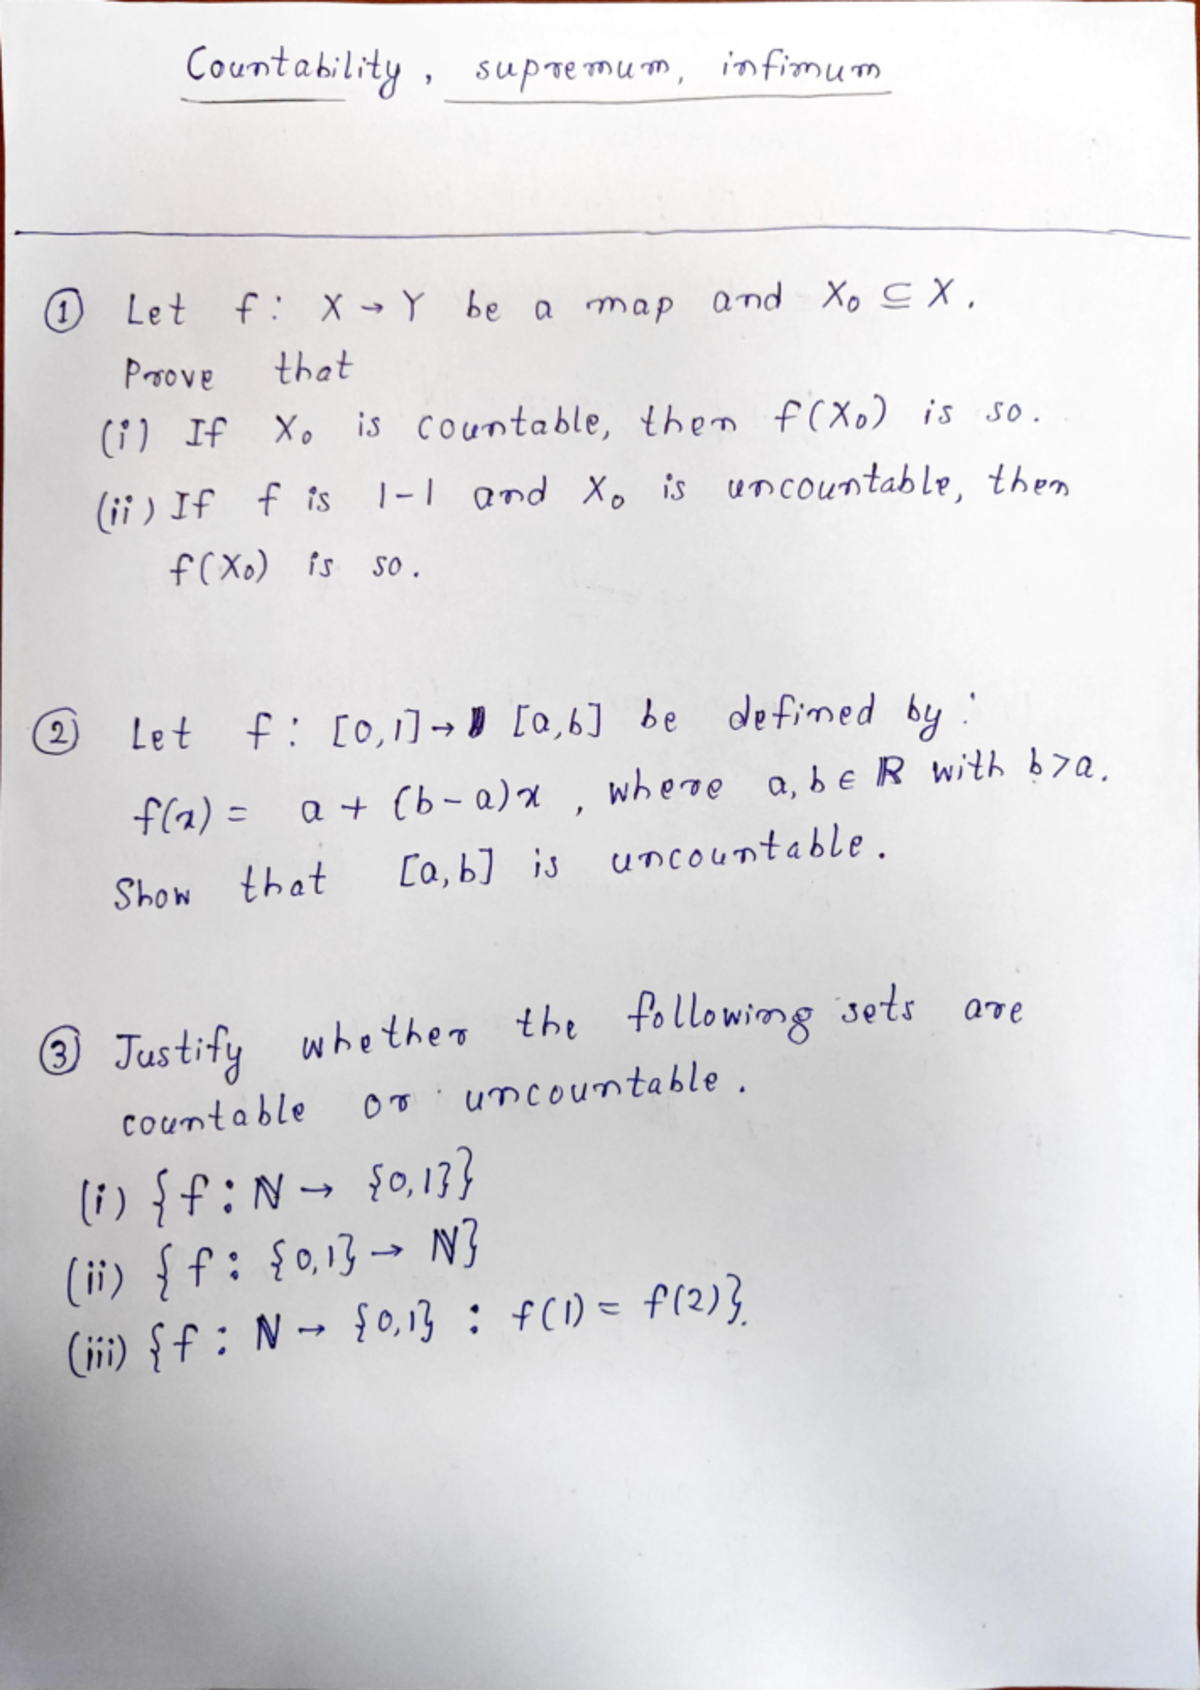 Countability, supremum, infimum
① Let f: X → Y be a map and X₀ ⊆ X.
Prove that
(i) If X₀ is countable, then f(X₀) is so.
(ii) If f is 1-1 and X₀ is uncountable, then
f(X₀) is so.
② Let f: [0,1] → [a,b] be defined by:
f(x) = a + (b-a)x, where a,b ∈ ℝ with b>a.
Show that [a,b] is uncountable.
③ Justify whether the following sets are
countable or uncountable.
(i) {f: ℕ → {0,1}}
(ii) {f: {0,1} → ℕ}
(iii) {f: ℕ → {0,1} : f(1) = f(2)}.